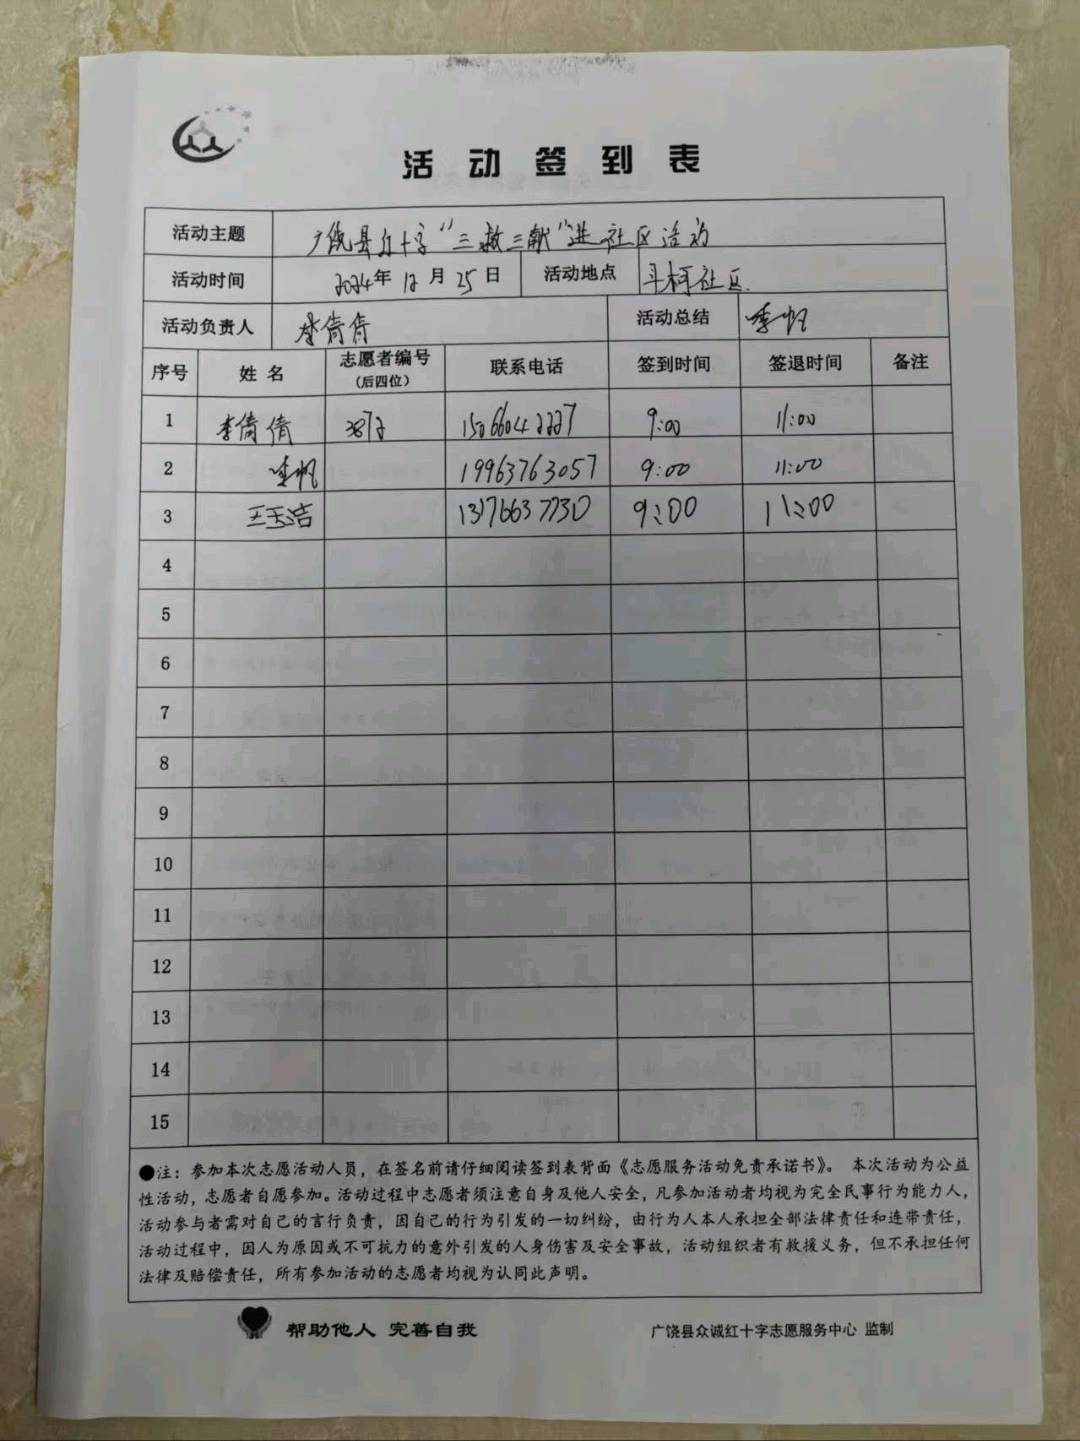 活动签到表
活动主题 广饶县红十字“三救三献”进社区活动
活动时间 2024年12月25日 活动地点 斗柯社区
活动负责人 李倩倩 活动总结 季帆
序号 姓名 志愿者编号（后四位） 联系电话 签到时间 签退时间 备注
1 李倩倩 3872 15066042227 9:00 11:00
2 季帆 19963763057 9:00 11:00
3 王玉洁 13176637730 9:00 11:00
4
5
6
7
8
9
10
11
12
13
14
15
●注：参加本次志愿活动人员，在签名前请仔细阅读签到表背面《志愿服务活动免责承诺书》。 本次活动为公益
性活动，志愿者自愿参加。活动过程中志愿者须注意自身及他人安全，凡参加活动者均视为完全民事行为能力人，
活动参与者需对自己的言行负责，因自己的行为引发的一切纠纷，由行为人本人承担全部法律责任和连带责任，
活动过程中，因人为原因或不可抗力的意外引发的人身伤害及安全事故，活动组织者有救援义务，但不承担任何
法律及赔偿责任，所有参加活动的志愿者均视为认同此声明。
帮助他人 完善自我 广饶县众诚红十字志愿服务中心 监制